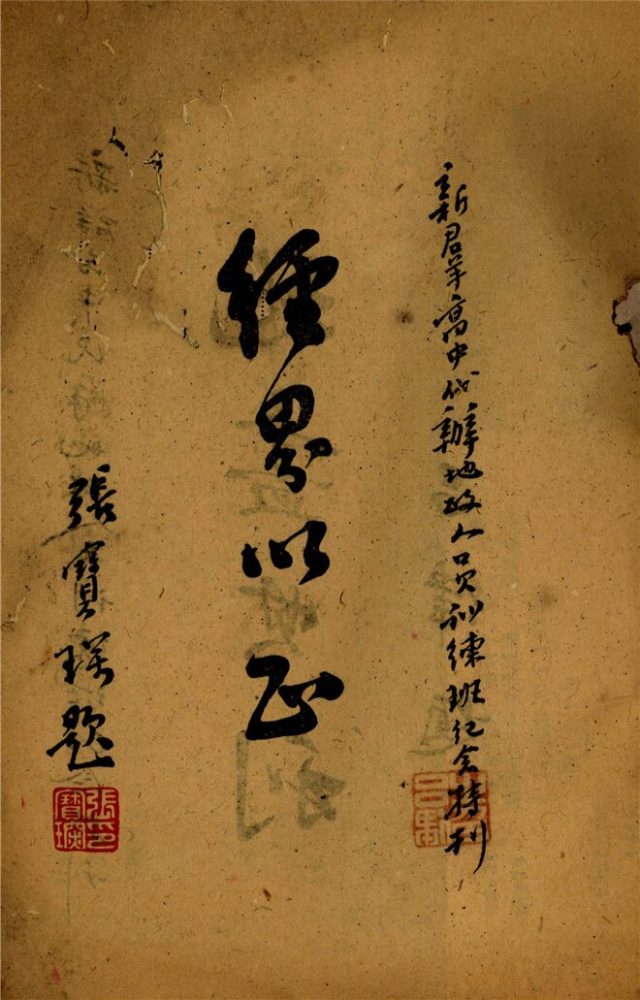 新群高中代辦地政人員訓練班紀念特刊
經界以正
張寶題
張印寶